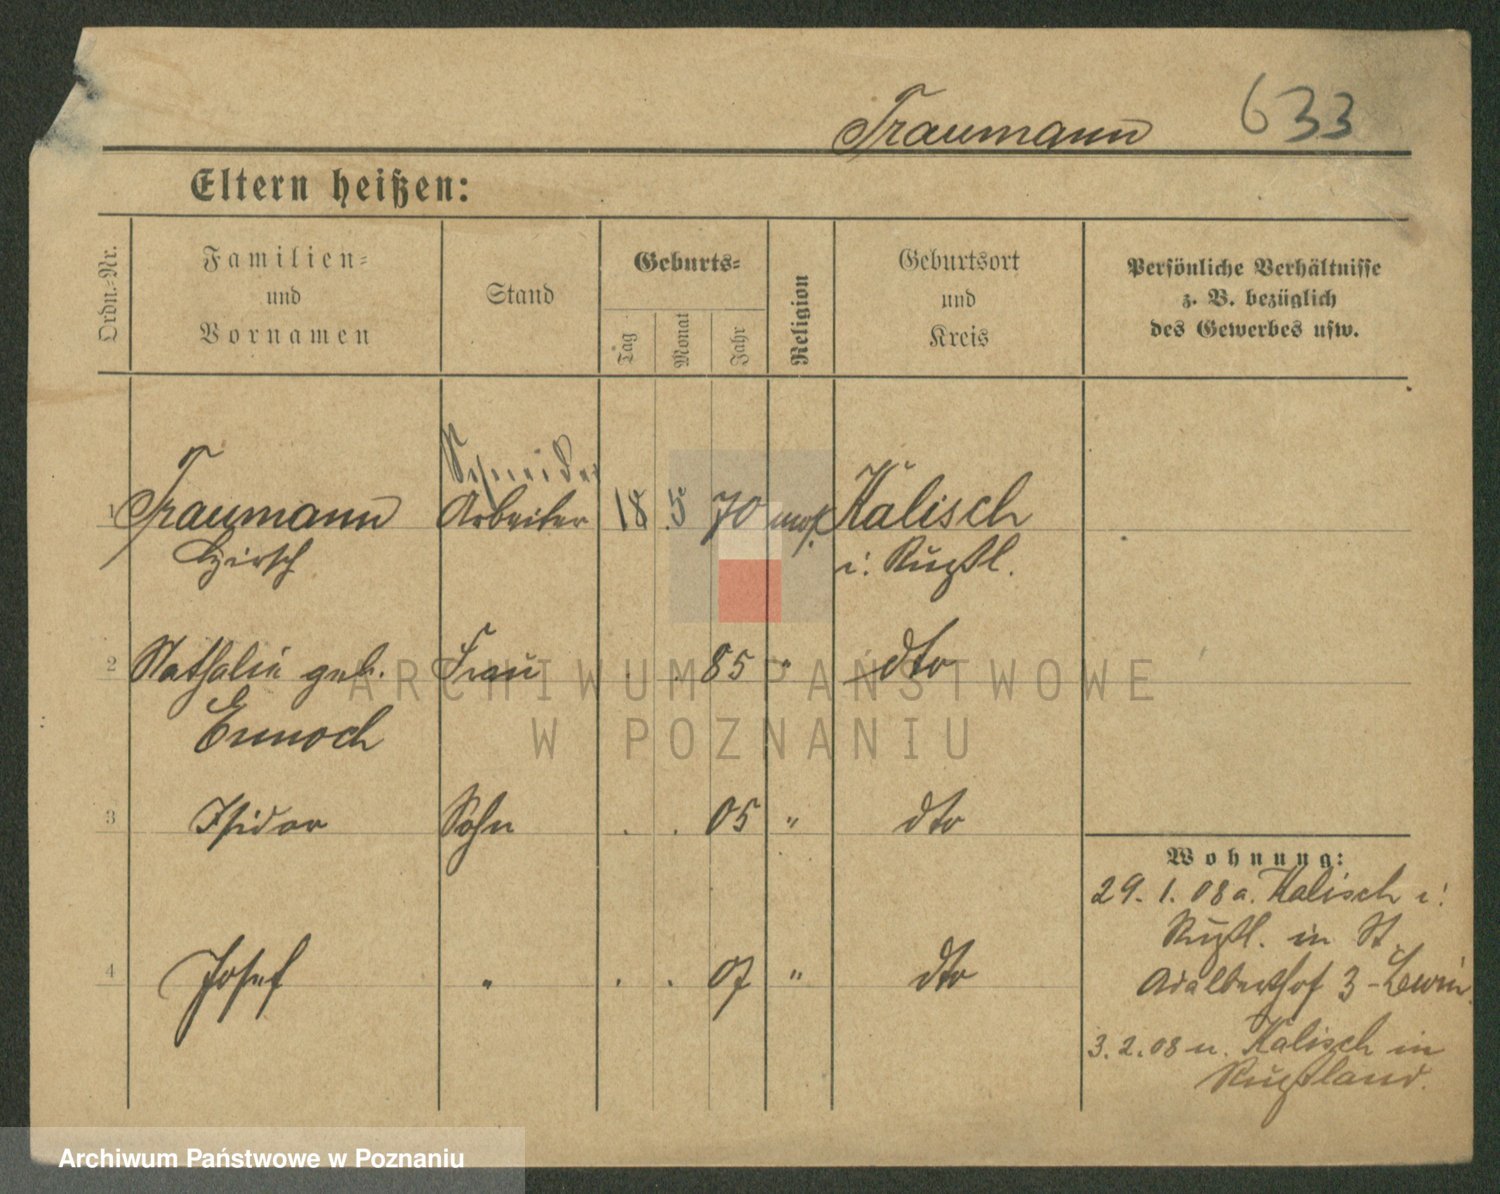 Traumann 633
Eltern heißen:
Ordn.-Nr.
Familien-
und
Vornamen
Stand
Geburts-
Tag
Monat
Jahr
Religion
Geburtsort
und
Kreis
Persönliche Verhältnisse
z. B. bezüglich
des Gewerbes usw.
Schneider
1 Traumann Arbeiter 18 5 70 mos. Kalisch
Hirsch i. Rußl.
2 Nathalie geb. Frau . . 85 " dto
Ennoch
3 Isidor Sohn . . 05 " dto
Wohnung:
29. 1. 08 a. Kalisch i.
Rußl. in St.
4 Josef " . . 07 " dto
Adalberthof 3 - Lewin
3. 2. 08 n. Kalisch in
Rußland.
ARCHIWUM PAŃSTWOWE
W POZNANIU
Archiwum Państwowe w Poznaniu